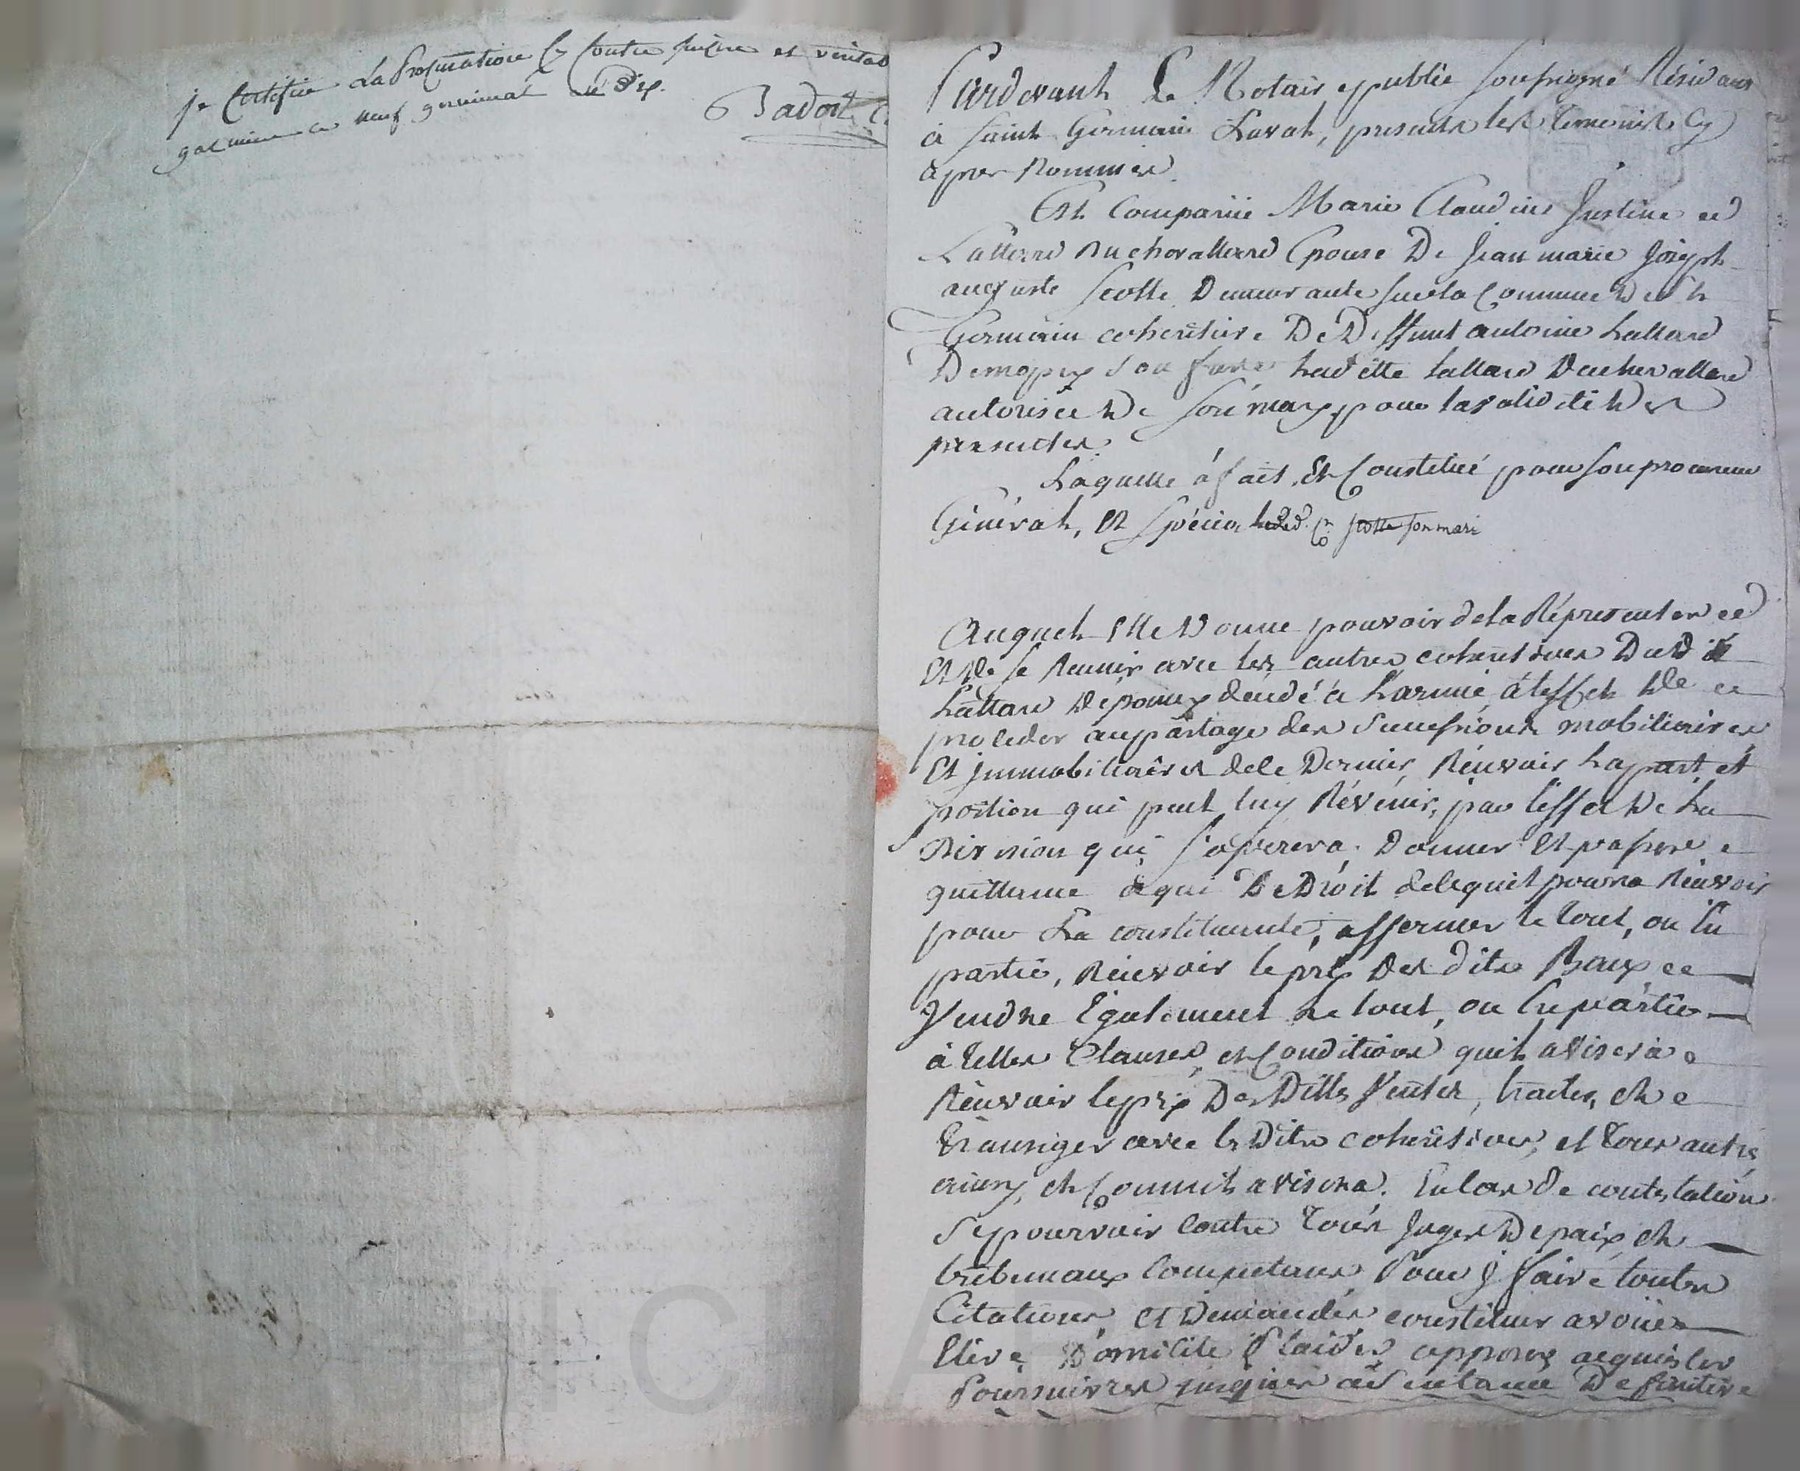 je Certifie La Procuration Cy Contre sincere et veritab
ce neuf germinal an Dix.
Badoit
Pardevant Le Notaire publie soussigné Résidant
à Saint Germain Laval, presents les temoins Cy
apres Nommes
Est Comparüe Marie Claudine Justine
Lattard Duchevallard Epouse De Jean marie Joseph
auguste Scotte Demeurante sur la Commune De St
Germain coheritiere De Deffunt antoine Lattard
son frere Laditte Lattard Duchevallard
autorisée De son mary pour la validité Des
presentes.
Laquelle à fait, Et Constitué pour son procureur
Général, Et Spécial led. Cn Scotte son mari
Auquel Elle Donne pouvoir de la Répresenter
Et De se Reunir avec les autres coheritiers Dud
Lattard décédé à L'armée, à l'effet De
proceder au partage des successions mobiliaires
Et immobiliaires de ce Dernier, Recevoir La part et
portion qui peut luy Révénir, par l'effet De La
Division qui s'operera, Donner Et passer
quittance à qui De Droit de ce quil pourra Recevoir
pour La constituante, affermer le tout, ou En
partie, Recevoir le prix Des dits Baux
Vendre Egalement Le tout, ou En partie
à telles Clauses, et Conditions quil avisera
Recevoir le prix Des Dittes Ventes, traiter, et
transiger avec les Dits coheritiers, et tous autres
ainsy, et Comme il avisera. En Cas de contestation
Se pourvoir Contre tous Juges De paix et
tribunaux Competans Pour y faire toutes
Citations, et Demandes constituer avoués
Elire Domicile Plaider, opposer acquiesser
Poursuivre jusques à Sentence Definitive